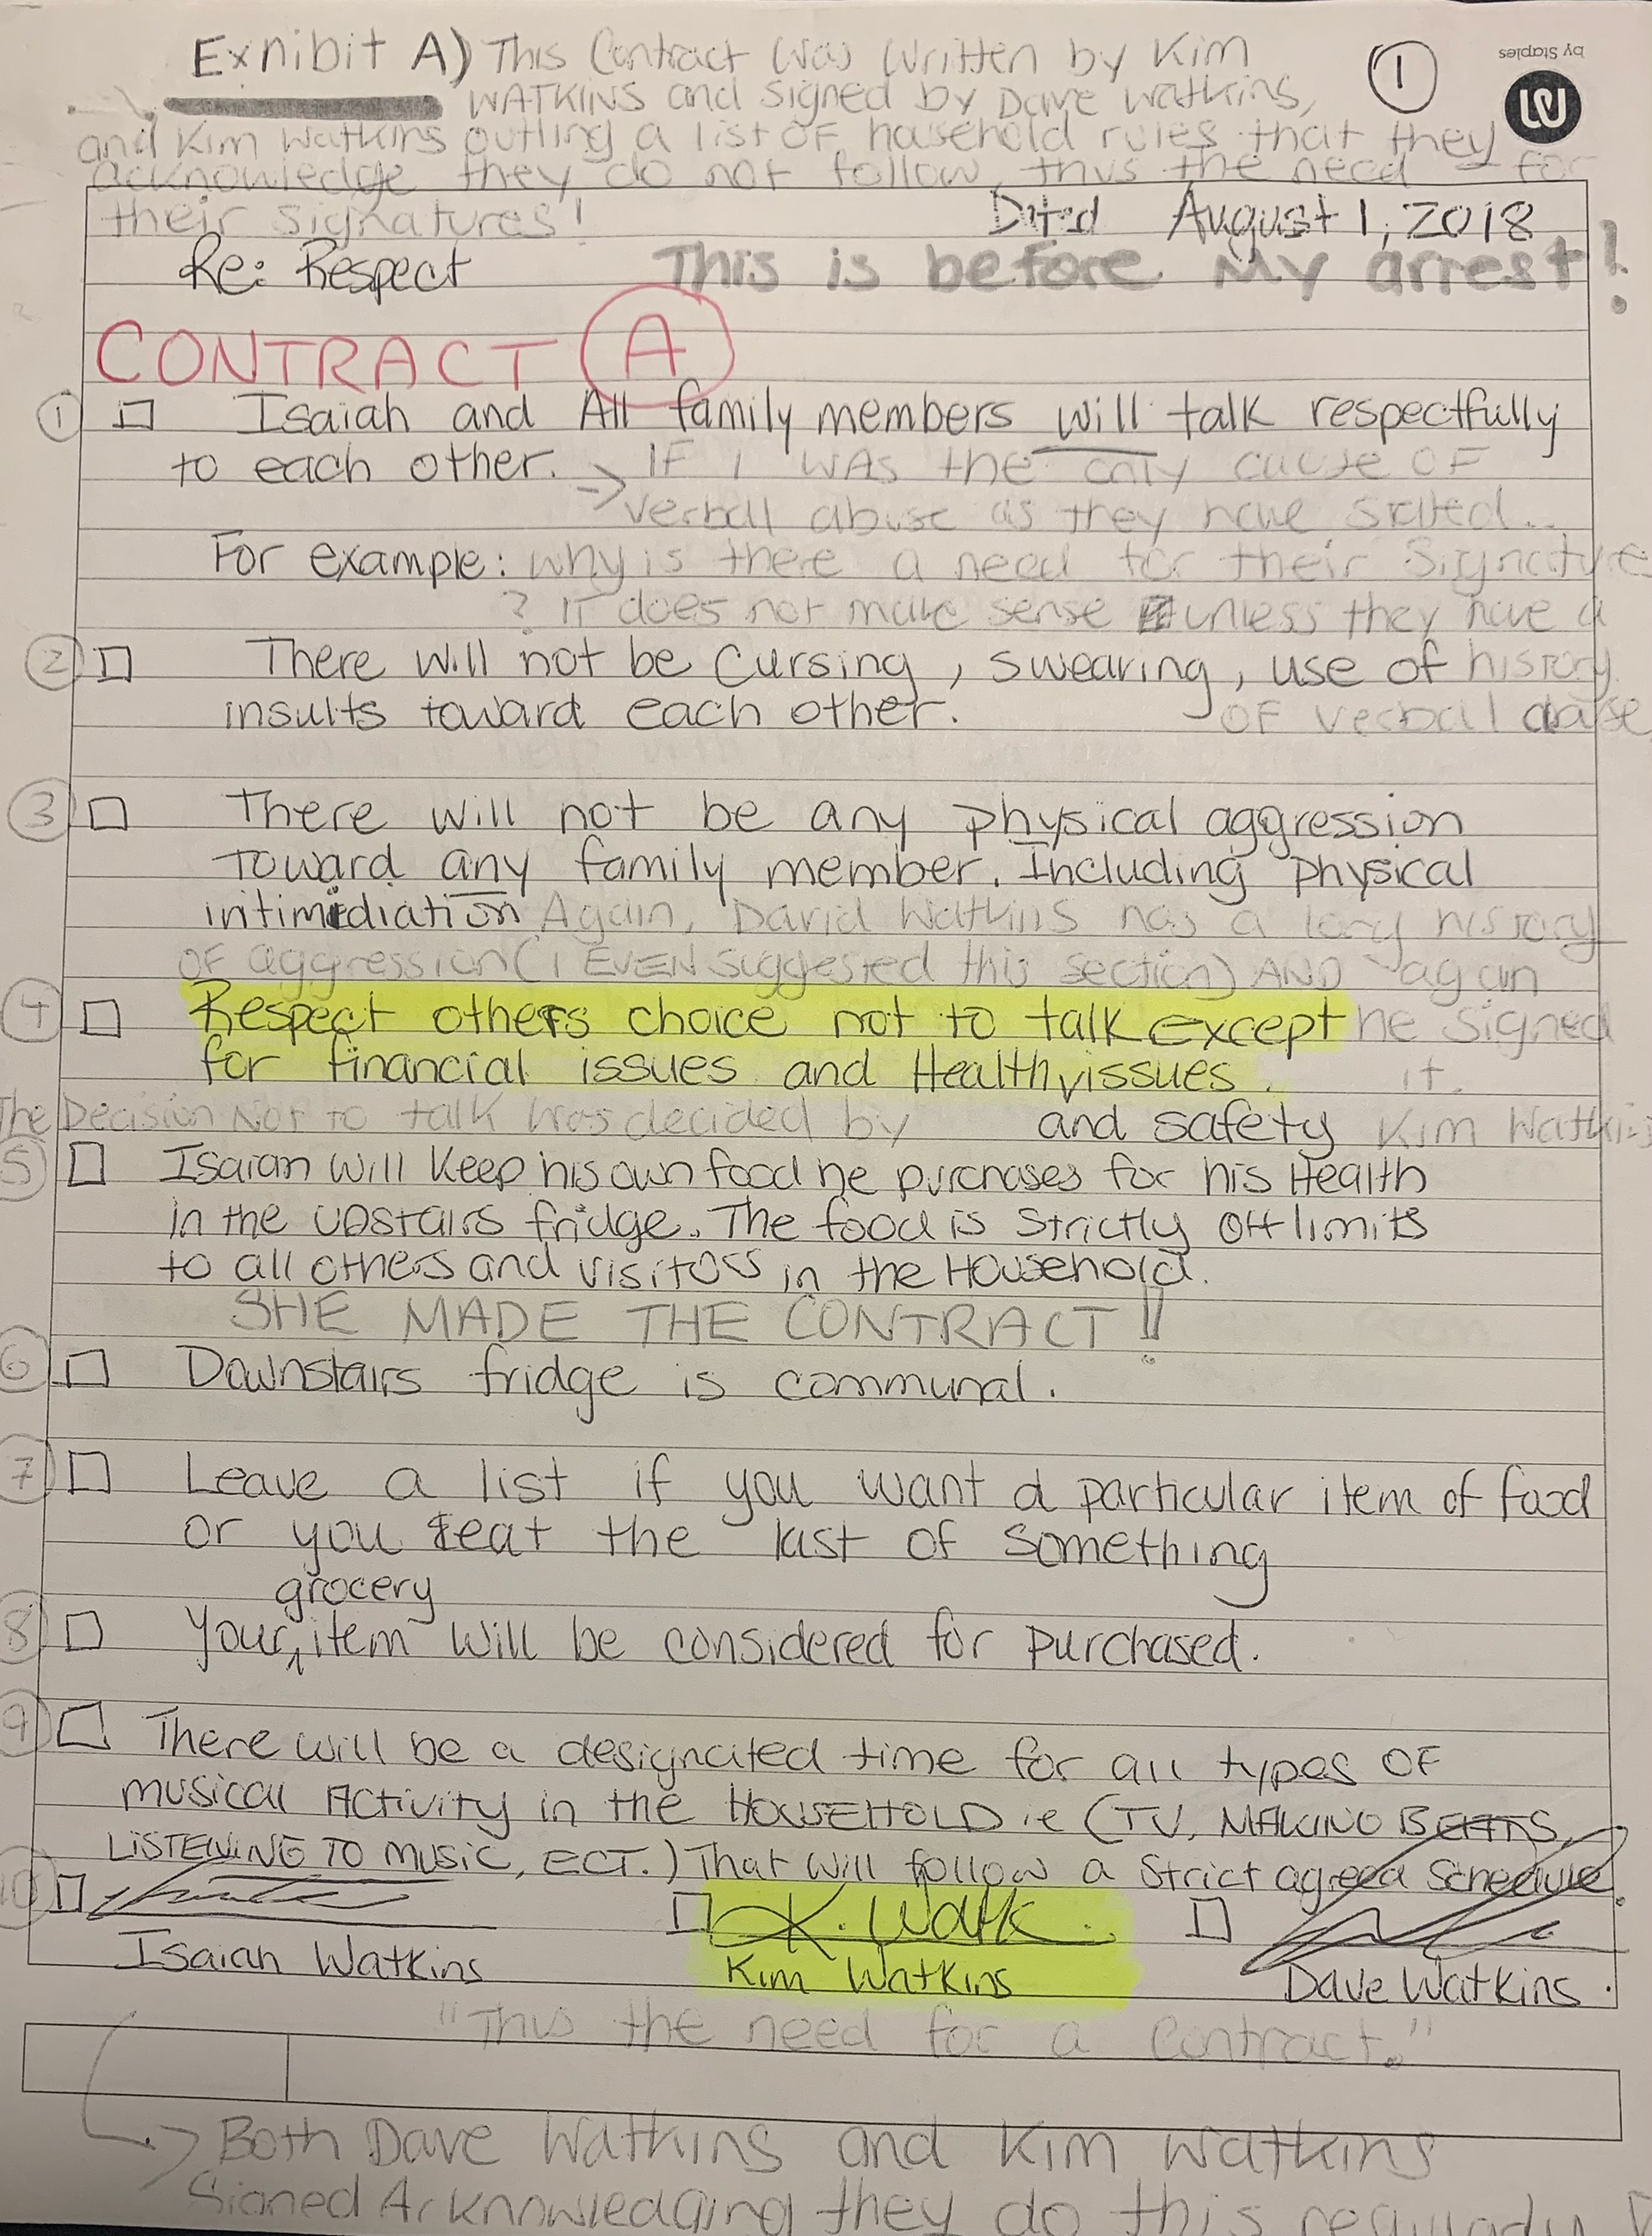 Exhibit A) This Contract Was Written by Kim
WATKINS and signed by Dave Watkins,
and Kim Watkins outling a list OF household rules that they
acknowledge they do not follow, thus the need for
their signatures!
1
by Staples
Dated August 1, 2018
Re: Respect This is before My arrest!
CONTRACT A
1 Isaiah and All family members will talk respectfully
to each other. -> IF I WAS the only cause OF
verball abuse as they have stated...
For example: why is there a need for their signature
? IT does not make sense unless they have a
2 There will not be cursing, swearing, use of history
insults toward each other. OF verball abuse
3 There will not be any physical aggression
Toward any family member. Including physical
intimidiation Again, David Watkins has a long history
OF aggression (I EVEN suggested this section) AND again
4 Respect others choice not to talk except he signed
for financial issues and Health issues. it.
The Decision Not to talk was decided by and safety Kim Watkins
5 Isaiah will Keep his own food he purchases for his Health
in the upstairs fridge. The food is strictly off limits
to all others and visitors in the Household.
SHE MADE THE CONTRACT!!
6 Downstairs fridge is communal.
7 Leave a list if you want a particular item of food
or you eat the last of something
grocery
8 Your item will be considered for purchased.
9 There will be a designated time for all types OF
musical Activity in the HOUSEHOLD ie (TV, MAKING BEATS,
LISTENING TO MUSIC, ECT.) That will follow a strict agreed schedule.
10 K. Watk
Isaiah Watkins Kim Watkins Dave Watkins.
"Thus the need for a contract."
-> Both Dave Watkins and Kim Watkins
Signed Acknowledging they do this regularly